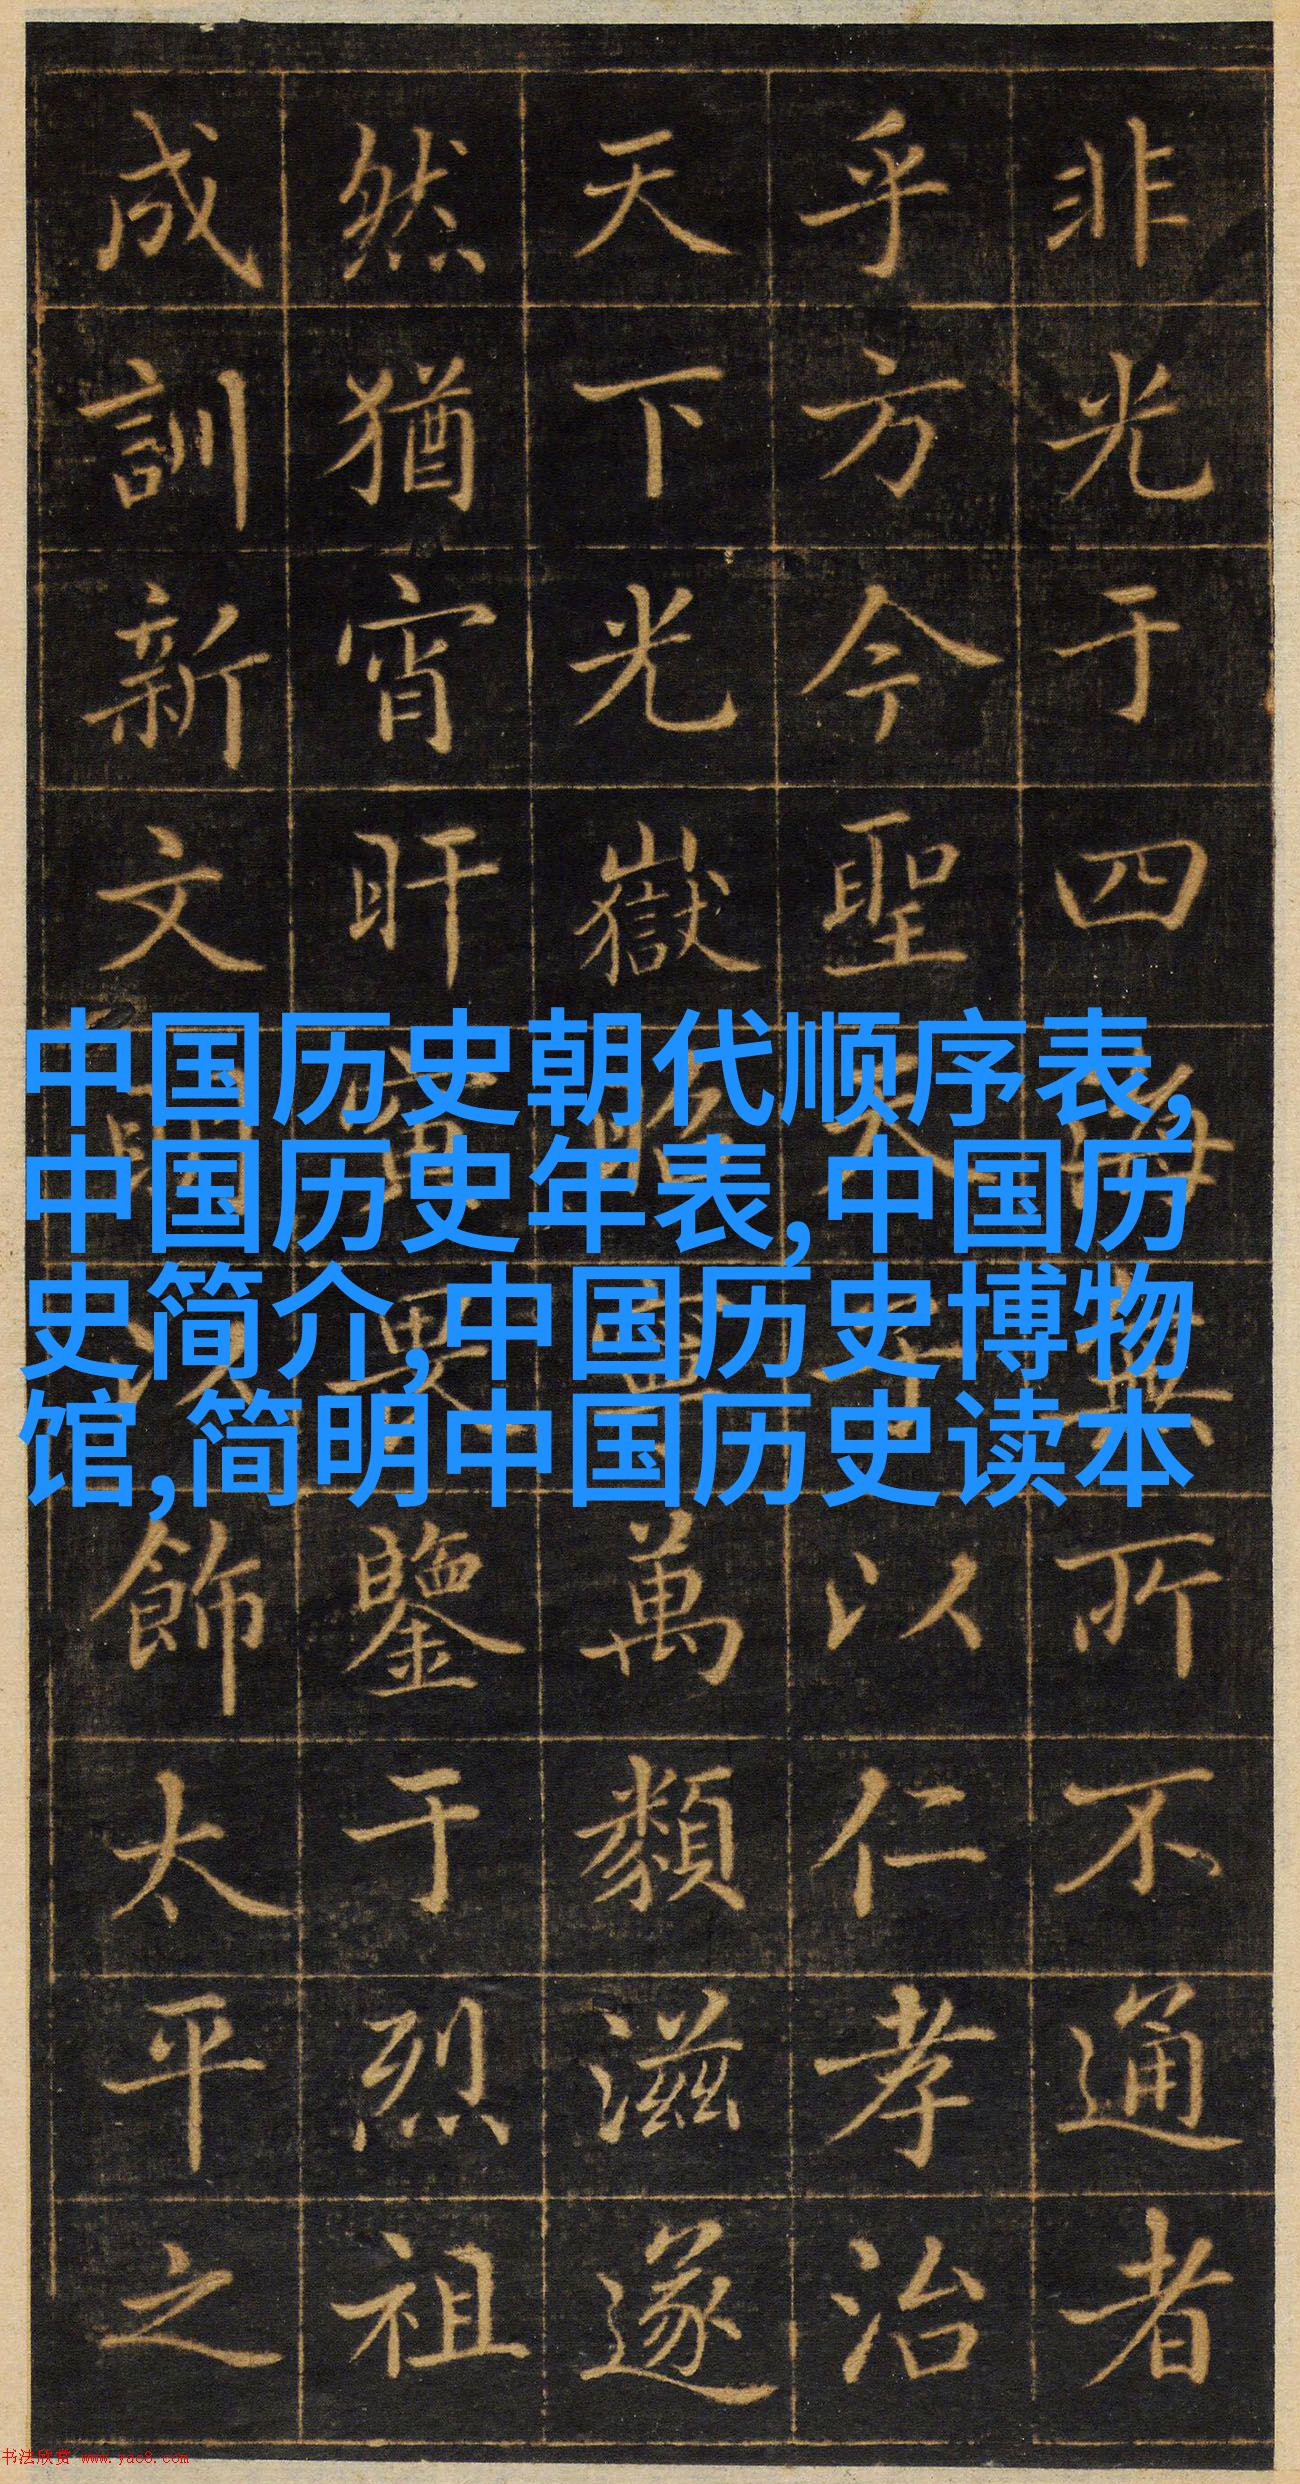 非光于四海無所不通者
乎方今聖天子以仁孝治
天下光嶽萬類滋遂
然猶宵旰寅畏鑒于烈祖
成訓新文明以飾太平之
中国历史朝代顺序表,
中国历史年表,中国历
史简介,中国历史博物
馆,简明中国历史读本
书法欣赏 www.yac8.com